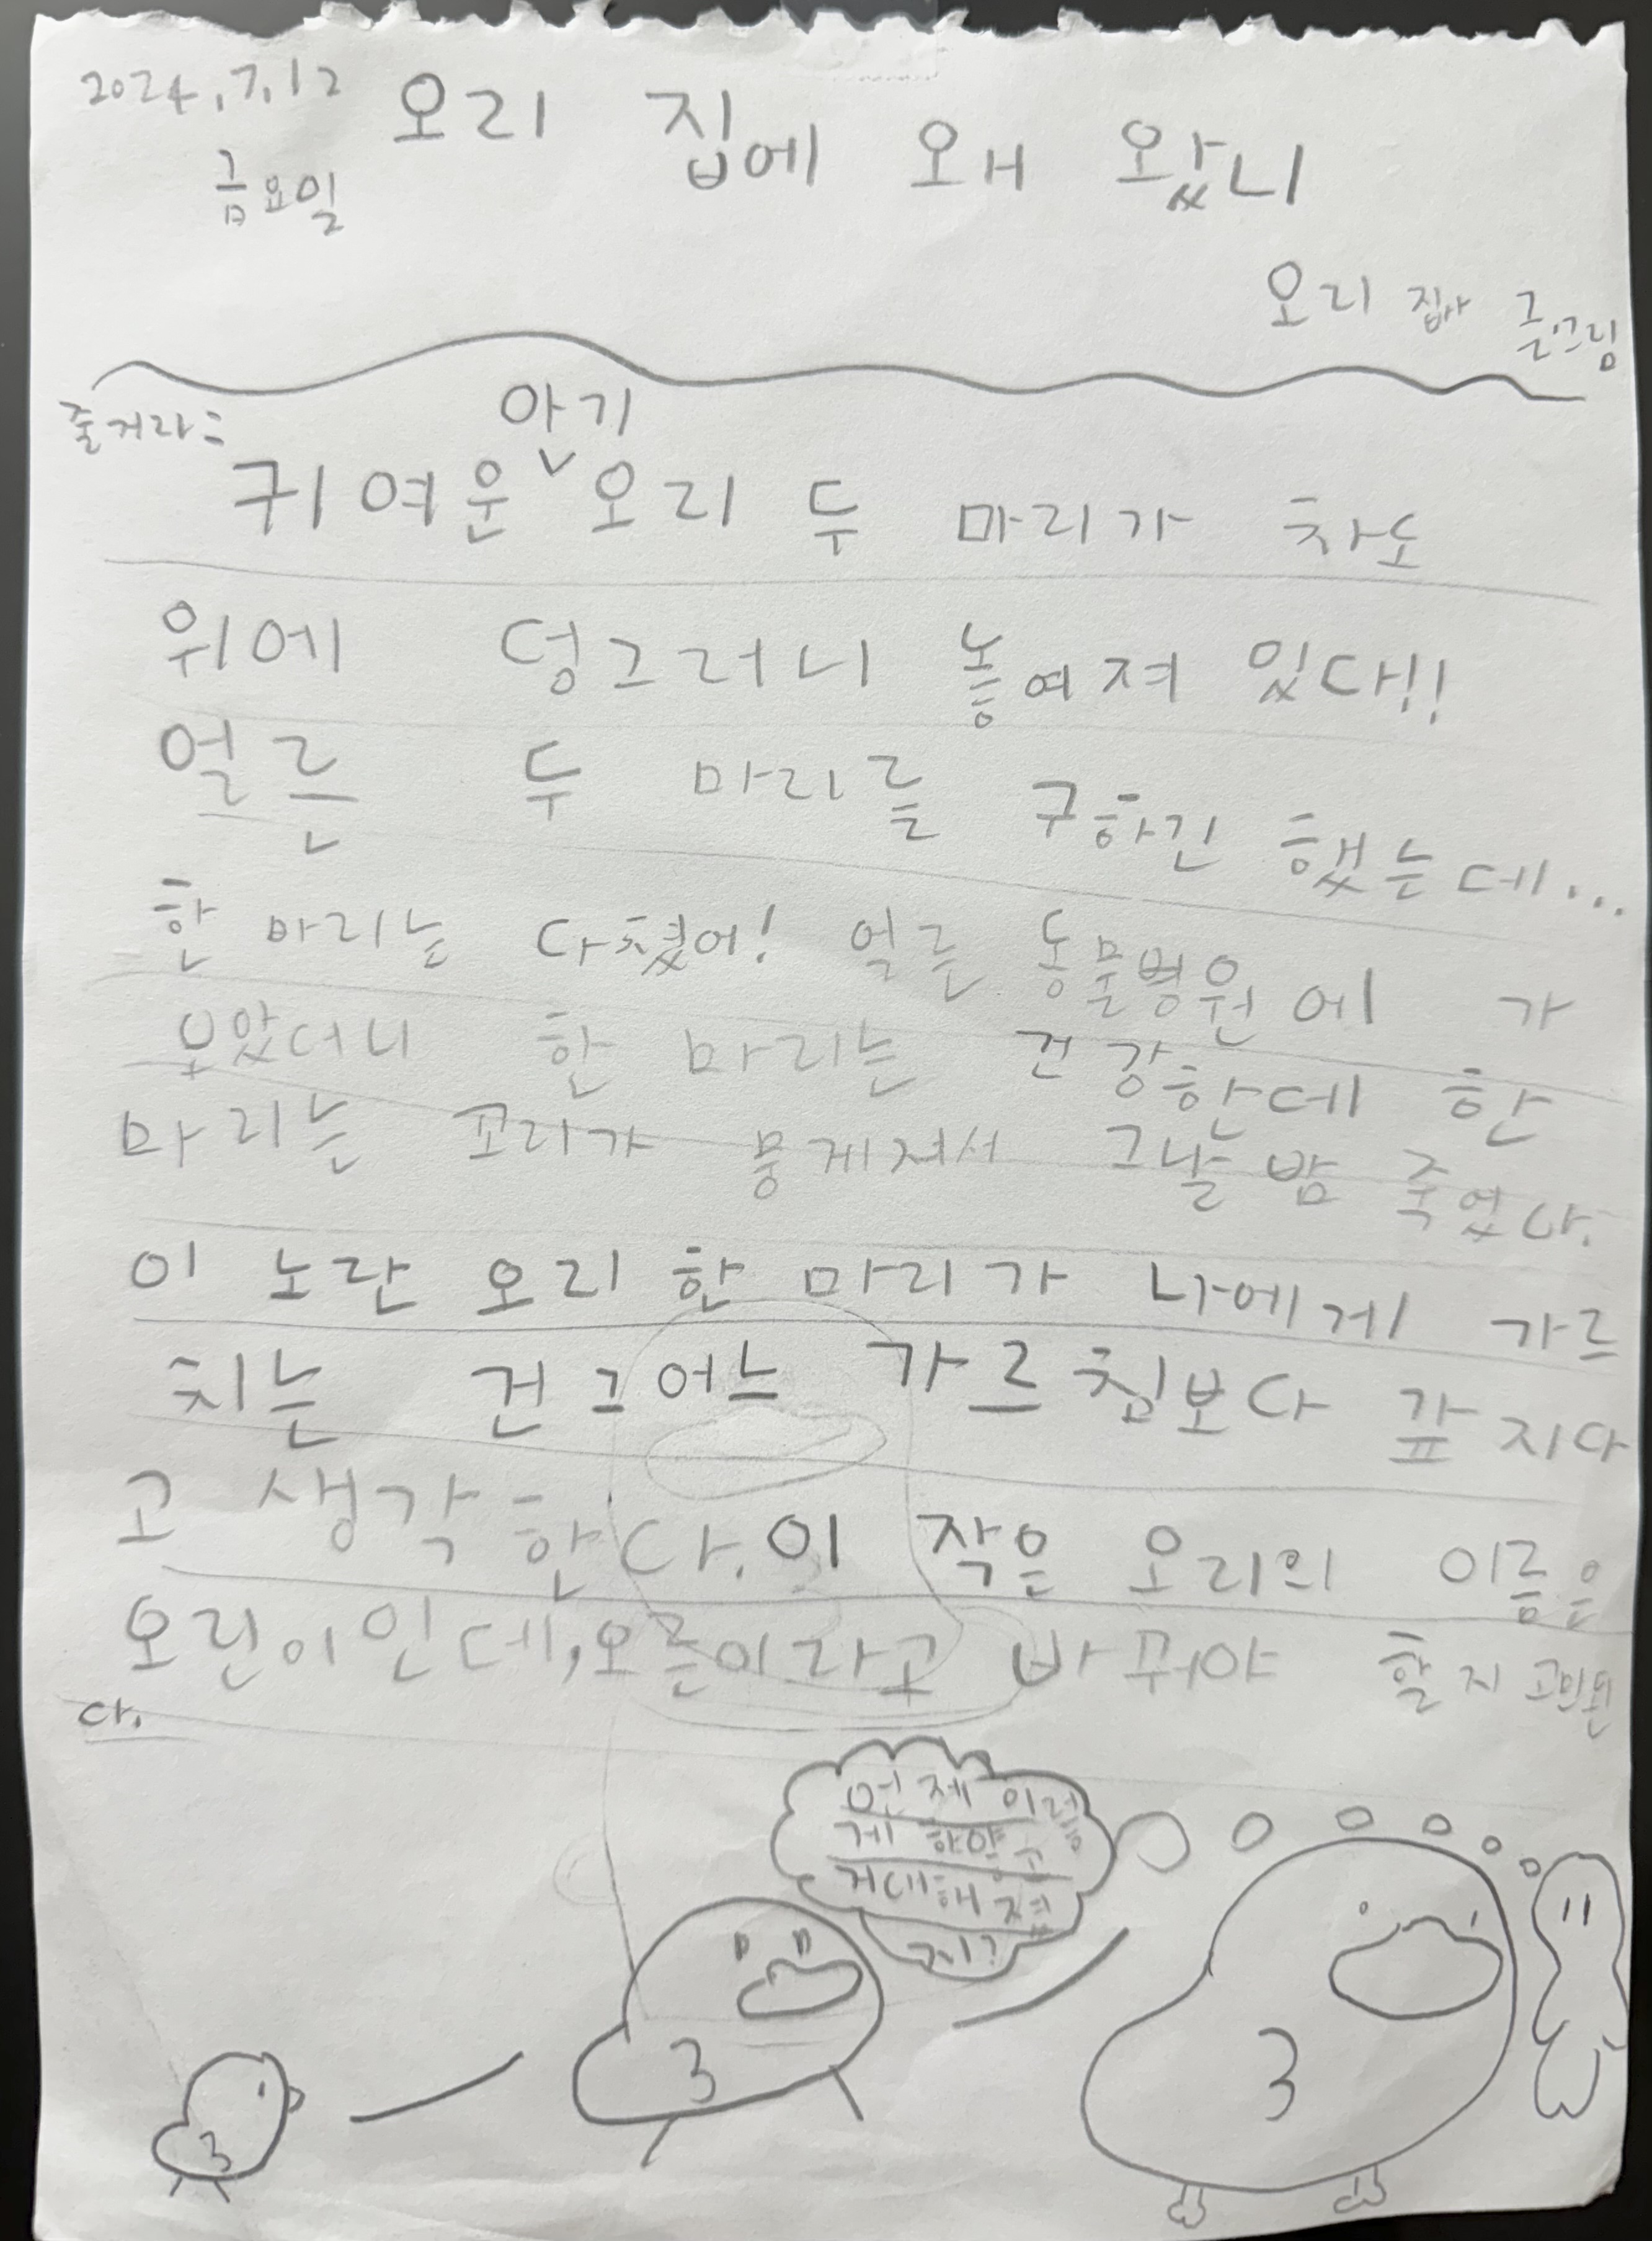 2024.7.12
금요일
오리 집에 왜 왔니
오리 집사 글.그림
줄거리:
아기
귀여운 오리 두 마리가 차도
위에 덩그러니 놓여져 있다!!
얼른 두 마리를 구하긴 했는데...
한 마리는 다쳤어! 얼른 동물병원에 가
보았더니 한 마리는 건강한데 한
마리는 꼬리가 뭉게져서 그날 밤 죽었다.
이 노란 오리 한 마리가 나에게 가르
치는 건 그 어느 가르침보다 값지다
고 생각한다. 이 작은 오리의 이름은
오린이인데, 오름이라고 바꿔야 할지 고민된
다.
언제 이렇
게 하얗고
거대해졌
지?
3
3
3